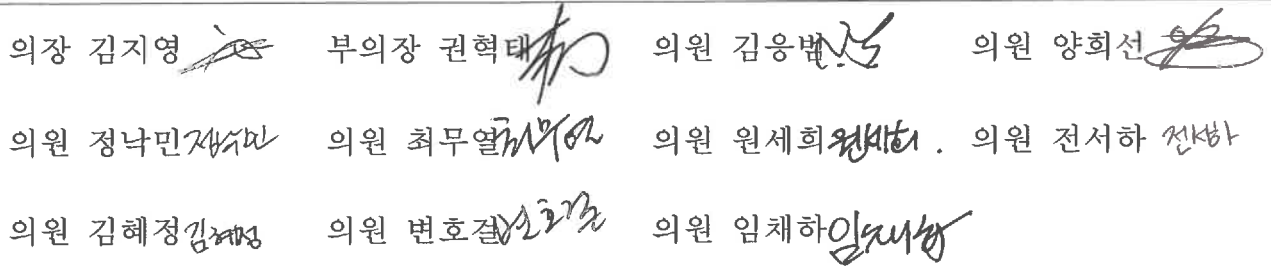 의장 김지영 부의장 권혁태 의원 김응범 의원 양희선
의원 정낙민 정낙민 의원 최무열 최무열 의원 원세희 원세희 . 의원 전서하 전서하
의원 김혜정 김혜정 의원 변호걸 변호걸 의원 임채하 임채하